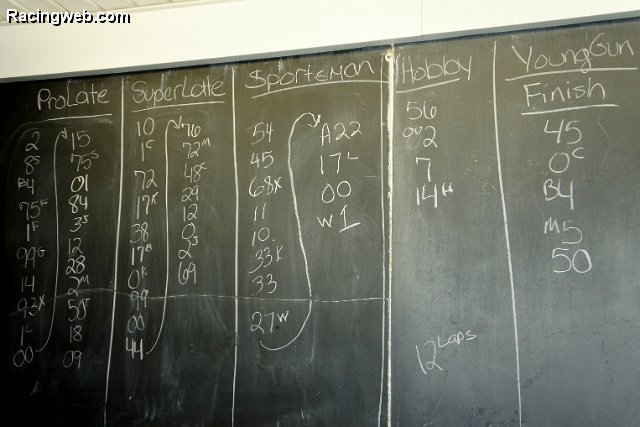 Racingweb.com
ProLate
2
8s
B4
75F
1F
99G
14
93x
1L
00
15
75s
01
84
3J
12
28
2M
18
09
SuperLate
10
1C
72
17K
38
17B
0K
99
00
44
76
72M
48C
29
12
0
69
$portsman
54
45
68x
11
10
33K
33
27W
A22
17L
00
W1
Hobby
56
2
7
14H
12 Laps
YoungGun
Finish
45
0C
B4
M5
50